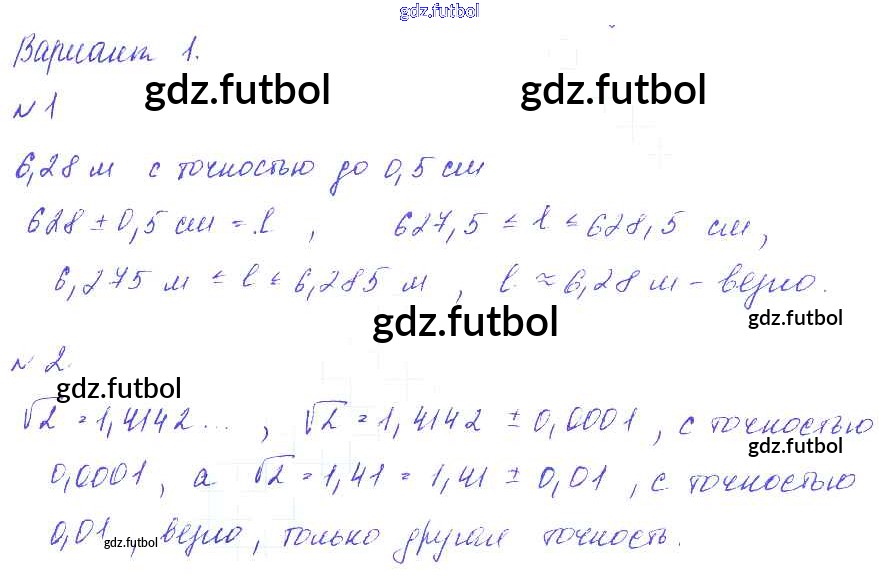 gdz.futbol
Вариант 1.
gdz.futbol gdz.futbol
№ 1
6,28 м с точностью до 0,5 см
628 ± 0,5 см = l , 627,5 ≤ l ≤ 628,5 см,
6,275 м ≤ l ≤ 6,285 м , l ≈ 6,28 м – верно.
gdz.futbol gdz.futbol
№ 2.
gdz.futbol
√2 = 1,4142... , √2 = 1,4142 ± 0,0001 , с точностью
gdz.futbol
0,0001 , а √2 = 1,41 = 1,41 ± 0,01 , с точностью
0,01 , верно, только другая точность.
gdz.futbol